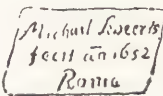 Michael Sweerts
fecit an̄ 1652
Roma